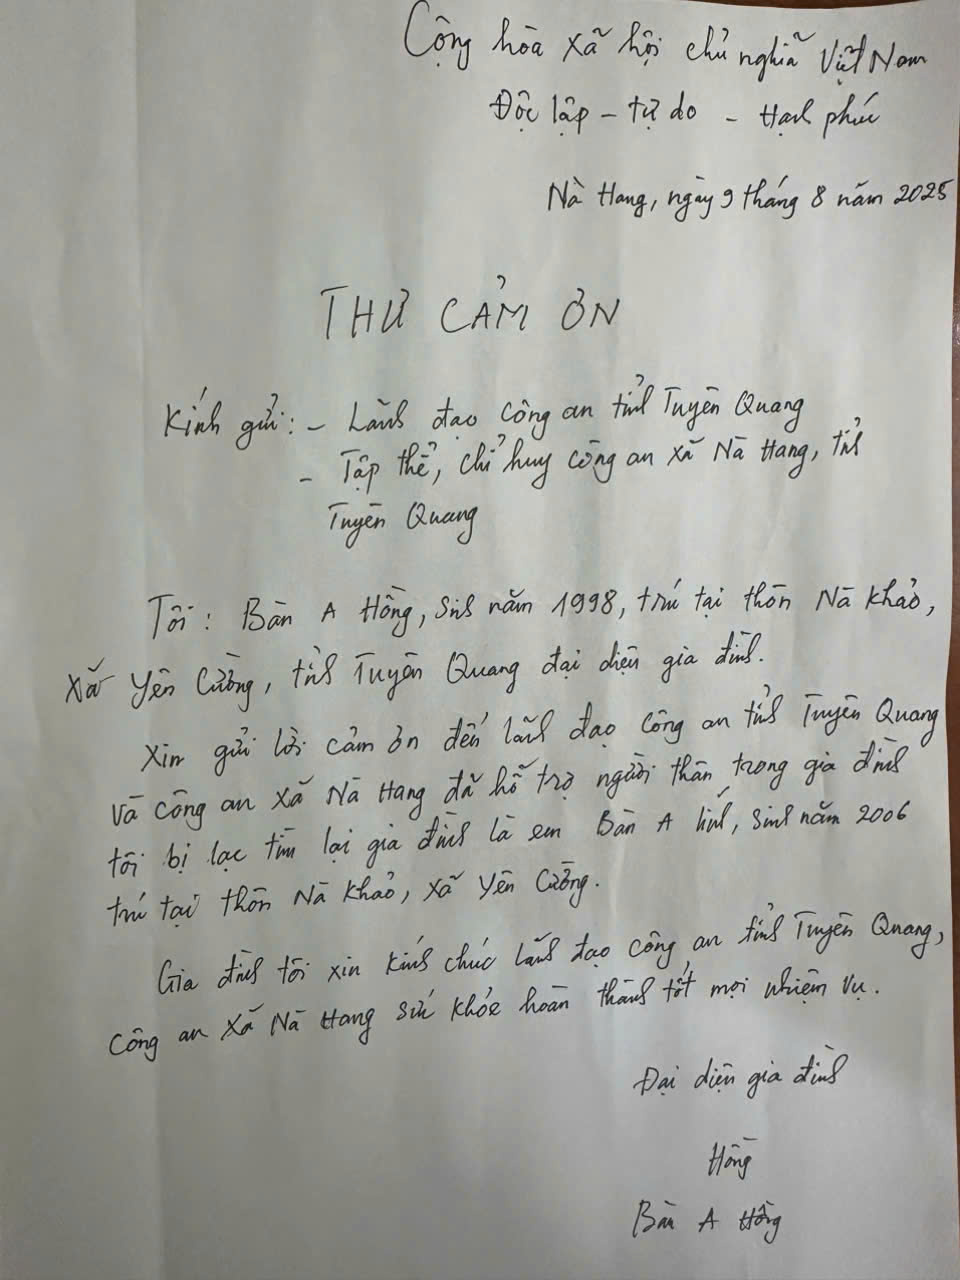 Cộng hòa xã hội chủ nghĩa Việt Nam
Độc lập - tự do - Hạnh phúc
Nà Hang, ngày 9 tháng 8 năm 2025
THƯ CẢM ƠN
Kính gửi: - Lãnh đạo công an tỉnh Tuyên Quang
- Tập thể, chỉ huy công an xã Nà Hang, tỉnh
Tuyên Quang
Tôi: Bàn A Hồng, sinh năm 1998, trú tại thôn Nà Khảo,
xã Yên Cường, tỉnh Tuyên Quang đại diện gia đình.
Xin gửi lời cảm ơn đến lãnh đạo công an tỉnh Tuyên Quang
và công an xã Nà Hang đã hỗ trợ người thân trong gia đình
tôi bị lạc tìm lại gia đình là em Bàn A Linh, sinh năm 2006
trú tại thôn Nà Khảo, xã Yên Cường.
Gia đình tôi xin kính chúc lãnh đạo công an tỉnh Tuyên Quang,
công an xã Nà Hang sức khỏe hoàn thành tốt mọi nhiệm vụ.
Đại diện gia đình
Hồng
Bàn A Hồng